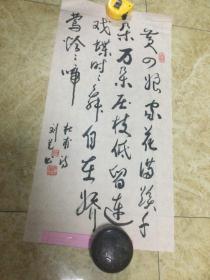 黄四娘家花满蹊千
朵万朵压枝低留连
戏蝶时〻舞自在娇
莺恰〻啼
杜甫诗
刘